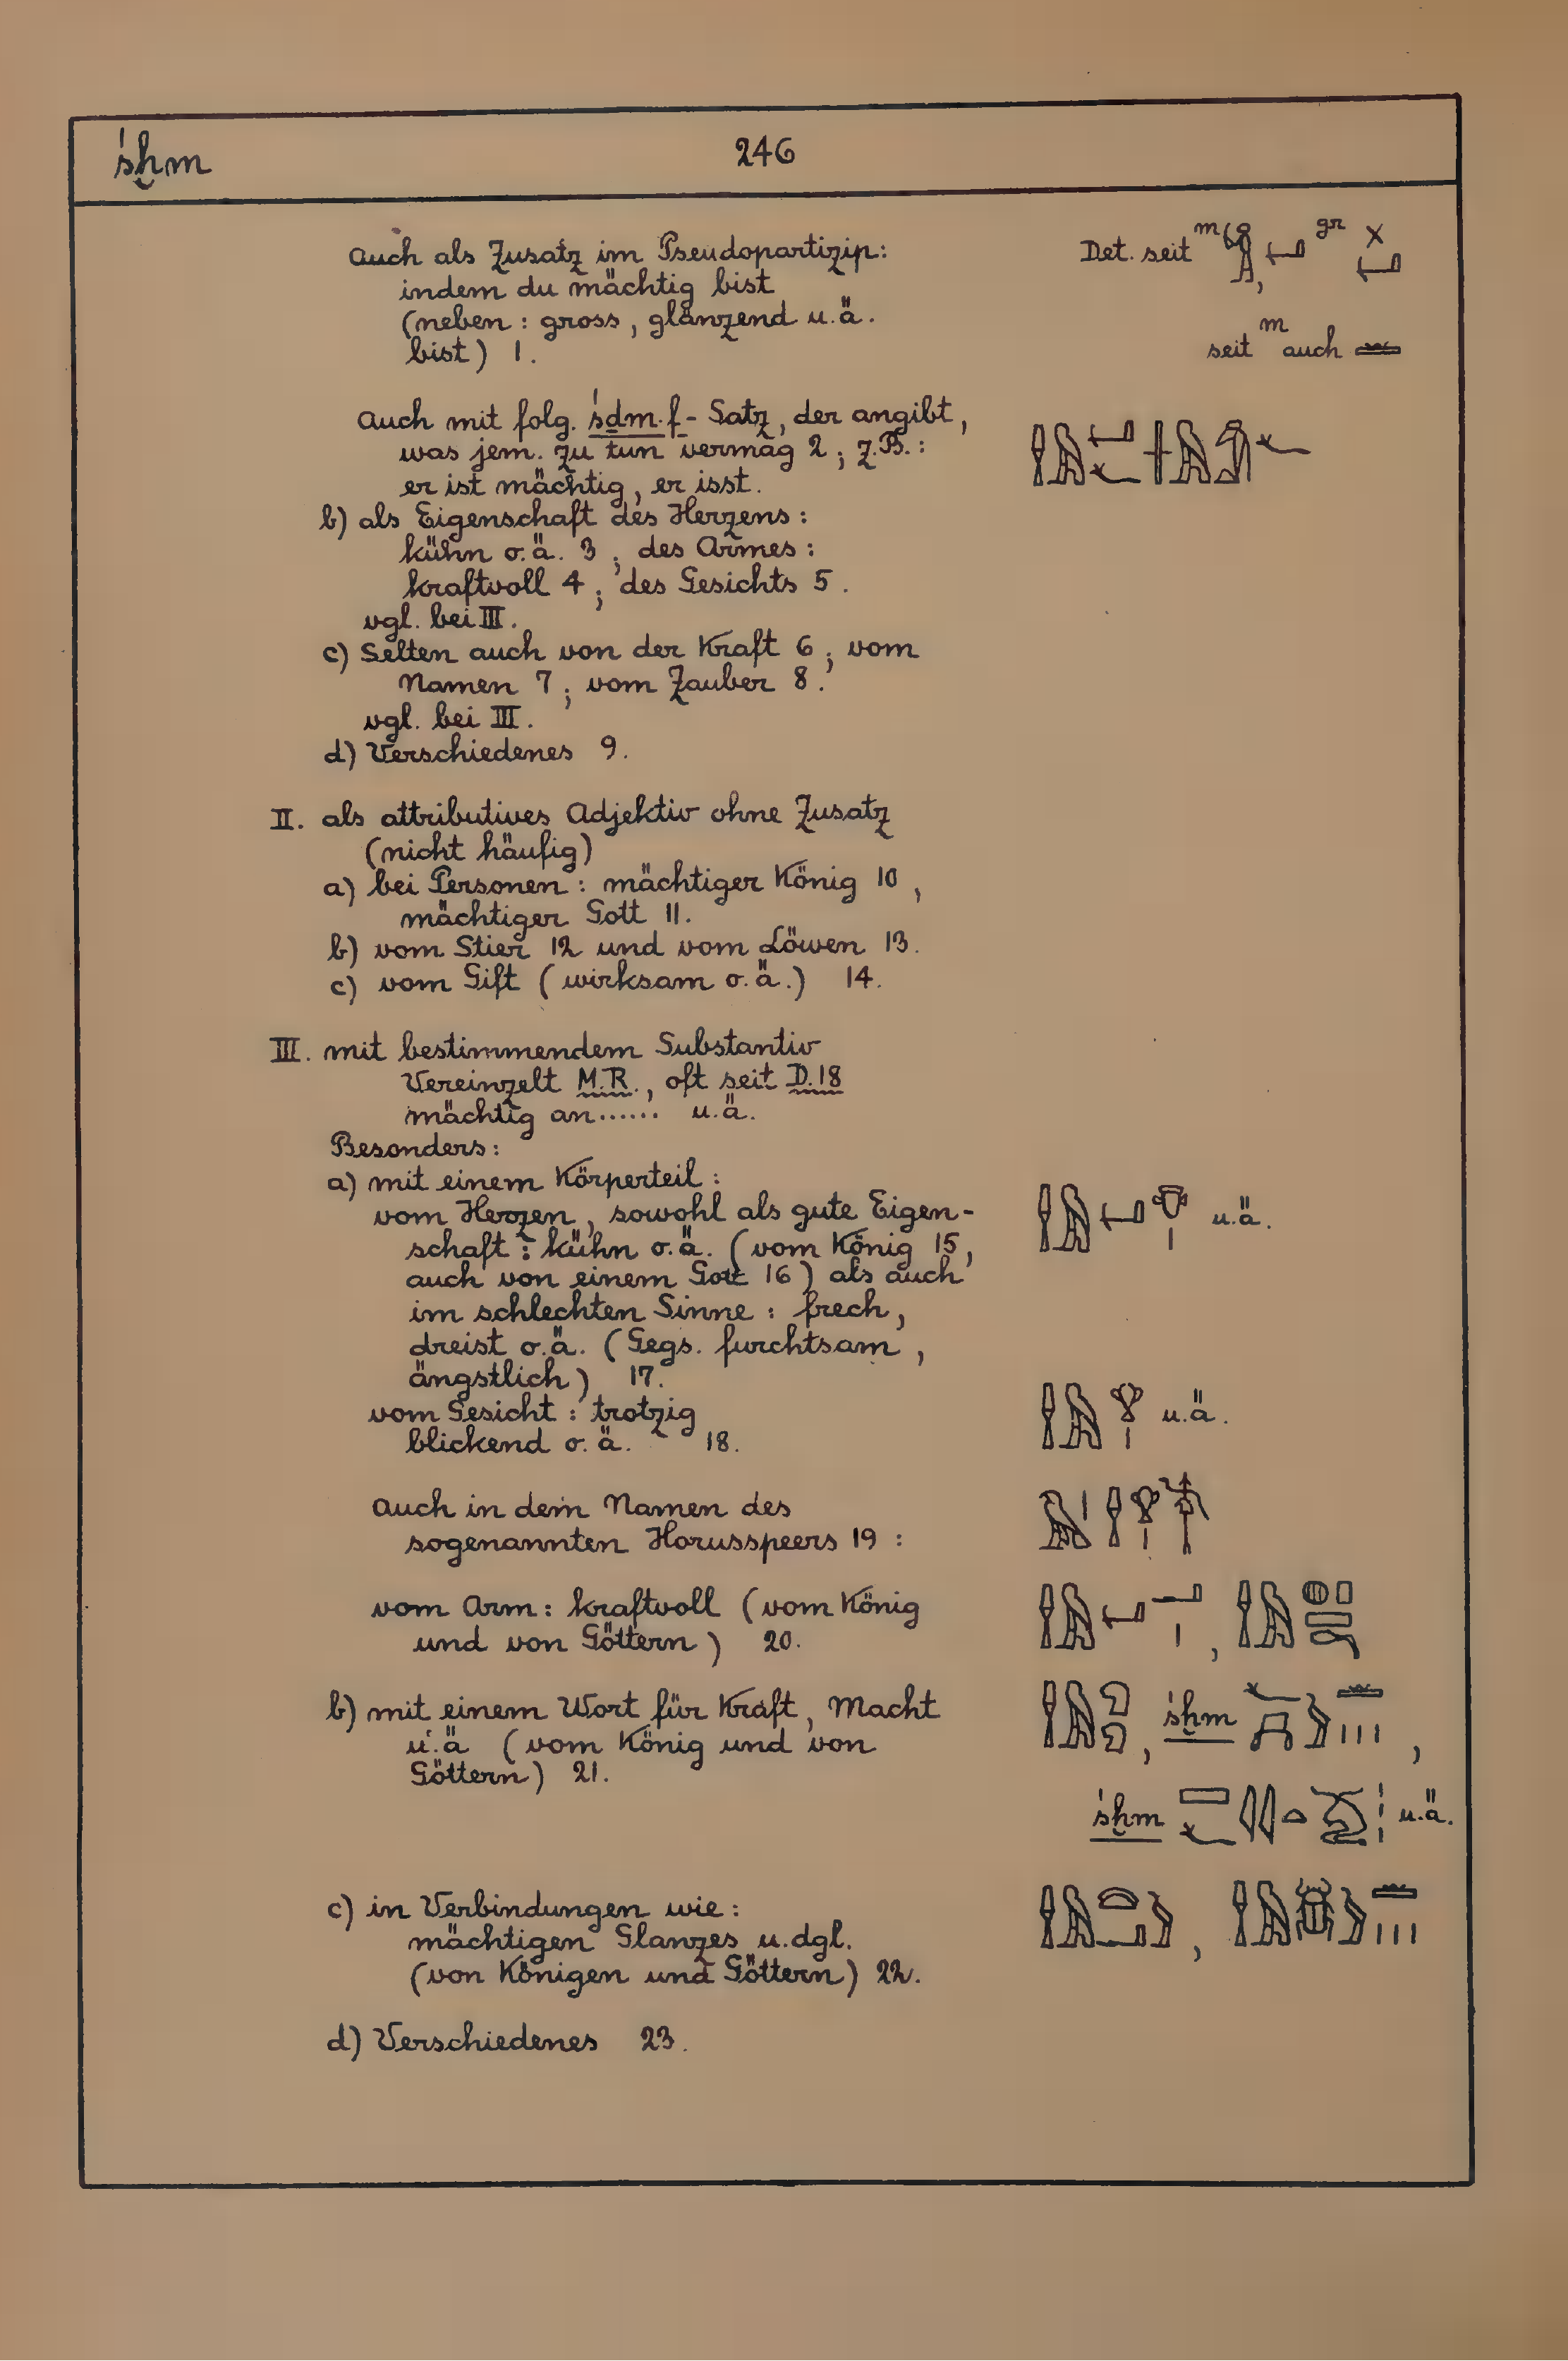 śḫm
246
Auch als Zusatz im Pseudopartizip:
indem du mächtig bist
(neben: gross, glänzend u.ä.
bist) 1.
Det. seit m , gr
seit m auch
Auch mit folg. śḏm.f-Satz, der angibt,
was jem. zu tun vermag 2; z.B.:
er ist mächtig, er isst.
b) als Eigenschaft des Herzens:
kühn o.ä. 3; des Armes:
kraftvoll 4; des Gesichts 5.
vgl. bei III.
c) Selten auch von der Kraft 6; vom
Namen 7; vom Zauber 8.
vgl. bei III.
d) Verschiedenes 9.
II. als attributives Adjektiv ohne Zusatz
(nicht häufig)
a) bei Personen: mächtiger König 10,
mächtiger Gott 11.
b) vom Stier 12 und vom Löwen 13.
c) vom Gift (wirksam o.ä.) 14.
III. mit bestimmendem Substantiv
Vereinzelt M.R., oft seit D.18
mächtig an...... u.ä.
Besonders:
a) mit einem Körperteil:
vom Herzen, sowohl als gute Eigen-
schaft: kühn o.ä. (vom König 15,
auch von einem Gott 16) als auch
im schlechten Sinne: frech,
dreist o.ä. (Gegs. furchtsam,
ängstlich) 17.
u.ä.
vom Gesicht: trotzig
blickend o.ä. 18.
u.ä.
auch in dem Namen des
sogenannten Horusspeers 19:
vom Arm: kraftvoll (vom König
und von Göttern) 20.
,
b) mit einem Wort für Kraft, Macht
u.ä (vom König und von
Göttern) 21.
, śḫm ,
śḫm u.ä.
c) in Verbindungen wie:
mächtigen Glanzes u.dgl.
(von Königen und Göttern) 22.
,
d) Verschiedenes 23.